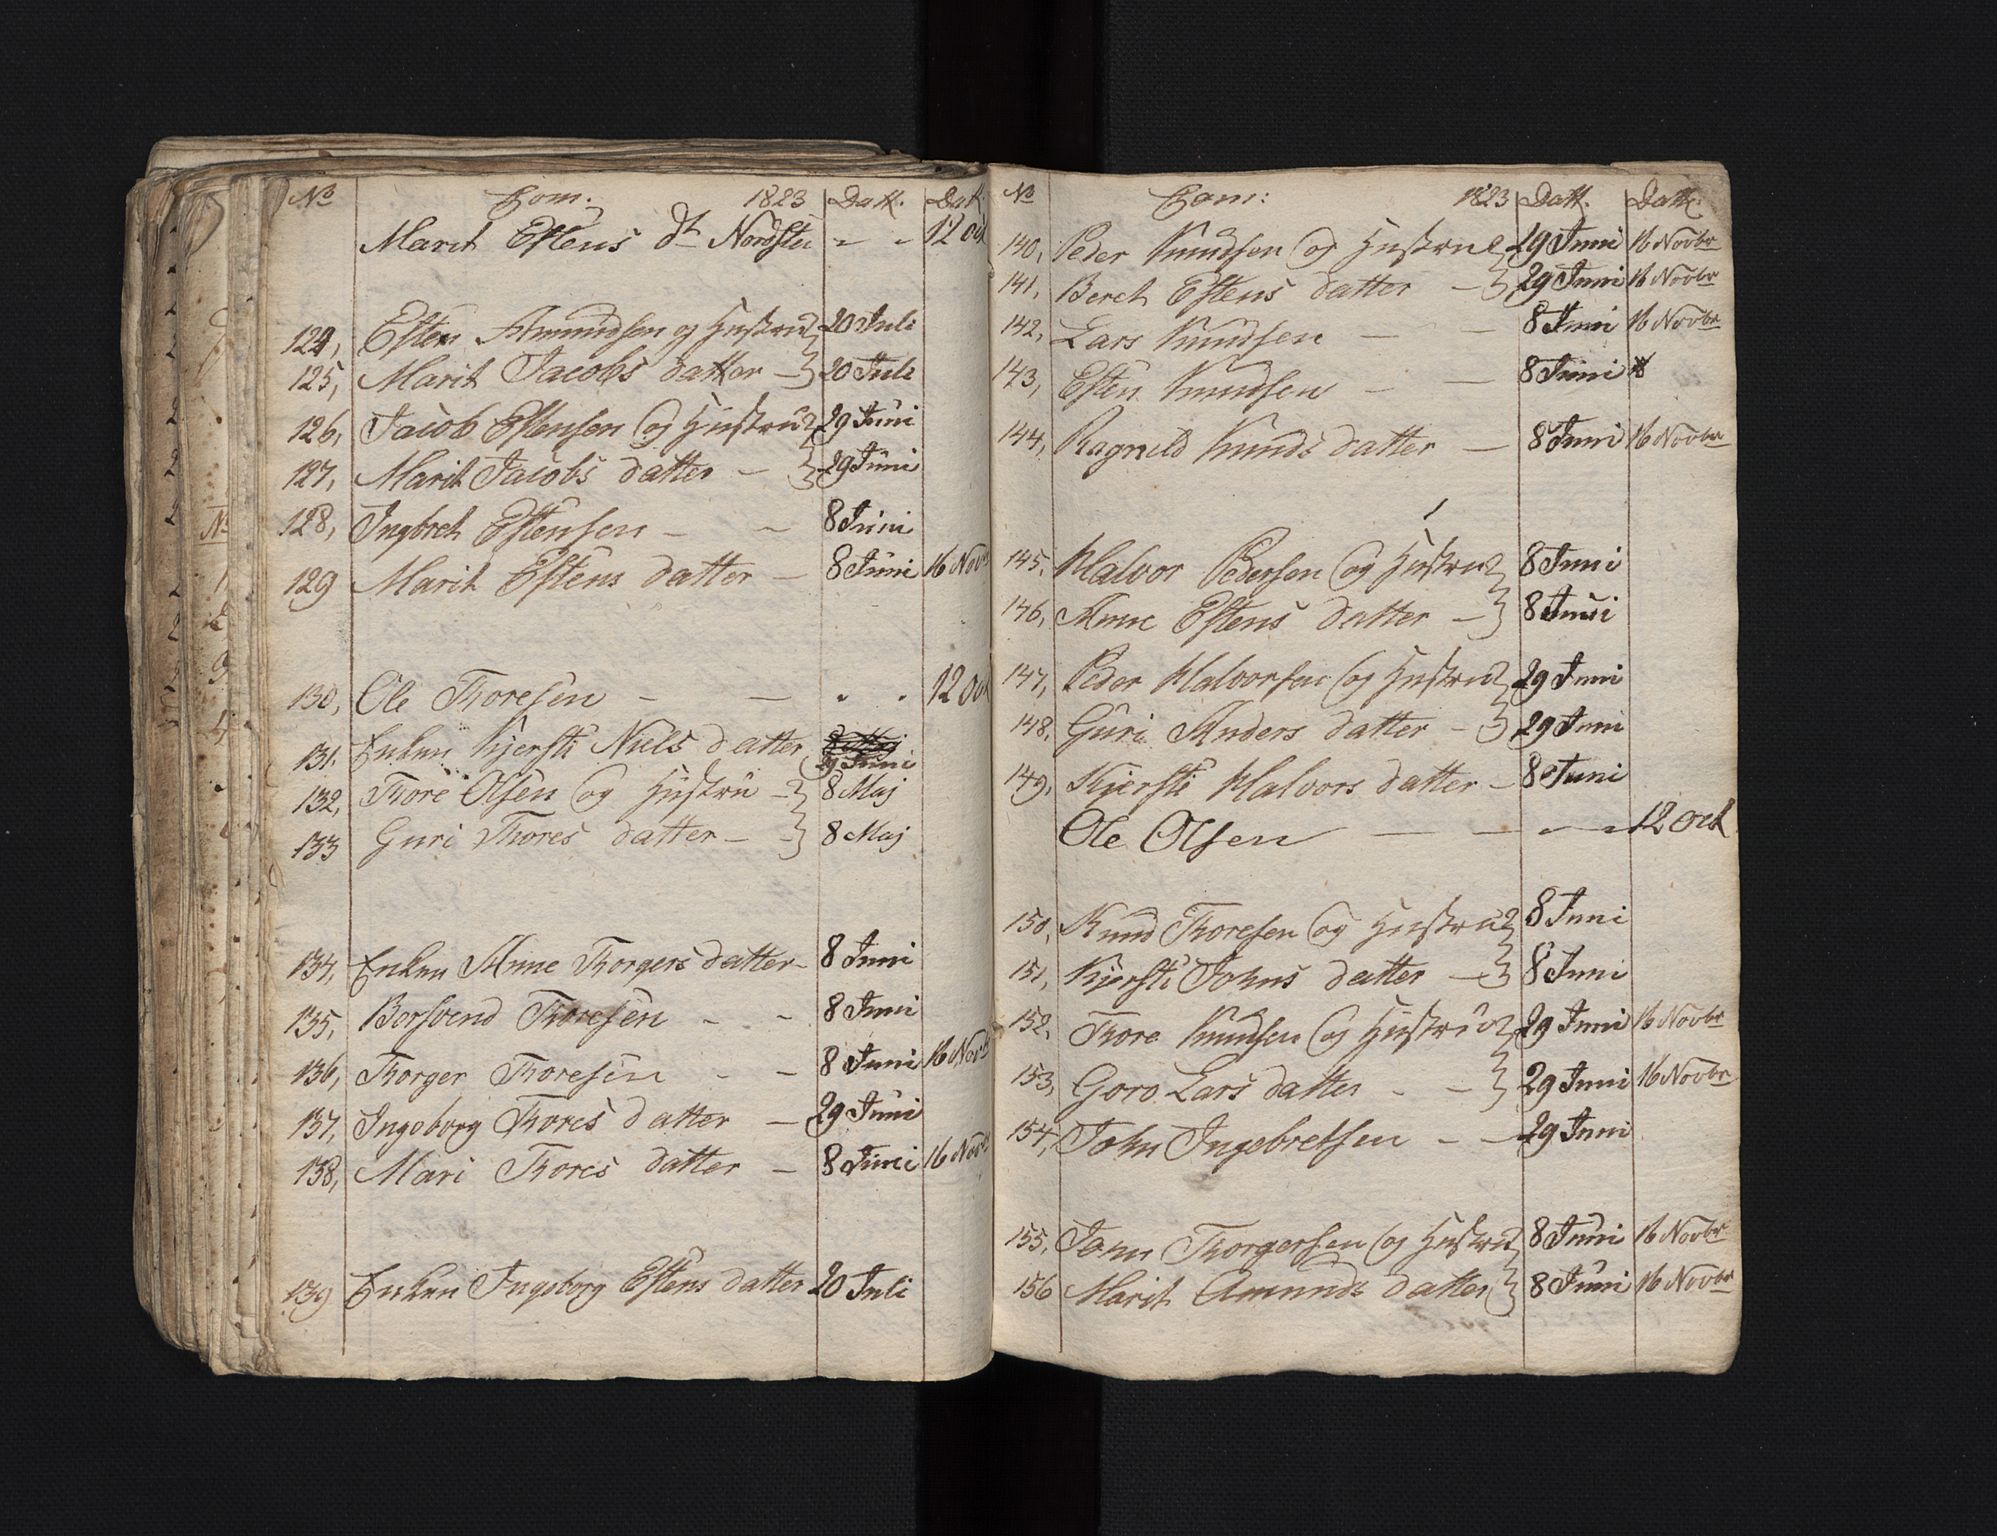 No Com. 1823 Datt. Dat.
Marit Estens Dt Nordsteu - - 12 Oct
124, Esten Amundsen og Hustru 20 Juli
125, Marit Jacobs datter - 20 Juli
126, Jacob Estensen og Hustru 29 Juni
127, Marit Jacobs datter - 29 Juni
128, Ingbret Estensen - - 8 Juni
129 Marit Estens datter - 8 Juni 16 Nov
130, Ole Thoresen - - - - 12 Oct
131. Enken Kjersti Niels datter 29 Juni
132, Thore Olsen og Hustru - 8 Maj
133 Guri Thores datter - - 8 Maj
134, Enken Anne Thorgers datter - 8 Juni
135, Borsvend Thoresen - - 8 Juni
136, Thorger Thoresen - - 8 Juni 16 Nov
137, Ingeborg Thores datter - 29 Juni
138, Mari Thores datter - 8 Juni 16 Nov
139 Enken Ingeborg Estens datter 20 Juli
No Com: 1823 Datt. Datt.
140, Peder Knudsen og Hustrue 29 Juni 16 Novbr
141, Beret Estens datter - 29 Juni 16 Novbr
142, Lars Knudsen - - 8 Juni 16 Novbr
143, Esten Knudsen - - 8 Juni
144, Ragnild Knuds datter - 8 Juni 16 Novbr
145, Halvor Pedersen og Hustru 8 Juni
146, Anne Estens datter - 8 Juni
147, Peder Halvorsen og Hustru 29 Juni
148, Guri Anders datter - 29 Juni
149, Kjersti Halvors datter - 8 Juni
Ole Olsen - - - - 12 Oct
150, Knud Thoresen og Hustru 8 Juni
151, Kjersti Johns datter - 8 Juni
152, Thore Knudsen og Hustru 29 Juni 16 Novbr
153, Goro Lars datter - - 29 Juni 16 Novbr
154, John Ingebretsen - - 29 Juni
155, John Thorgersen og Hustru 8 Juni 16 Novbr
156 Marit Amunds datter 8 Juni 16 Novbr